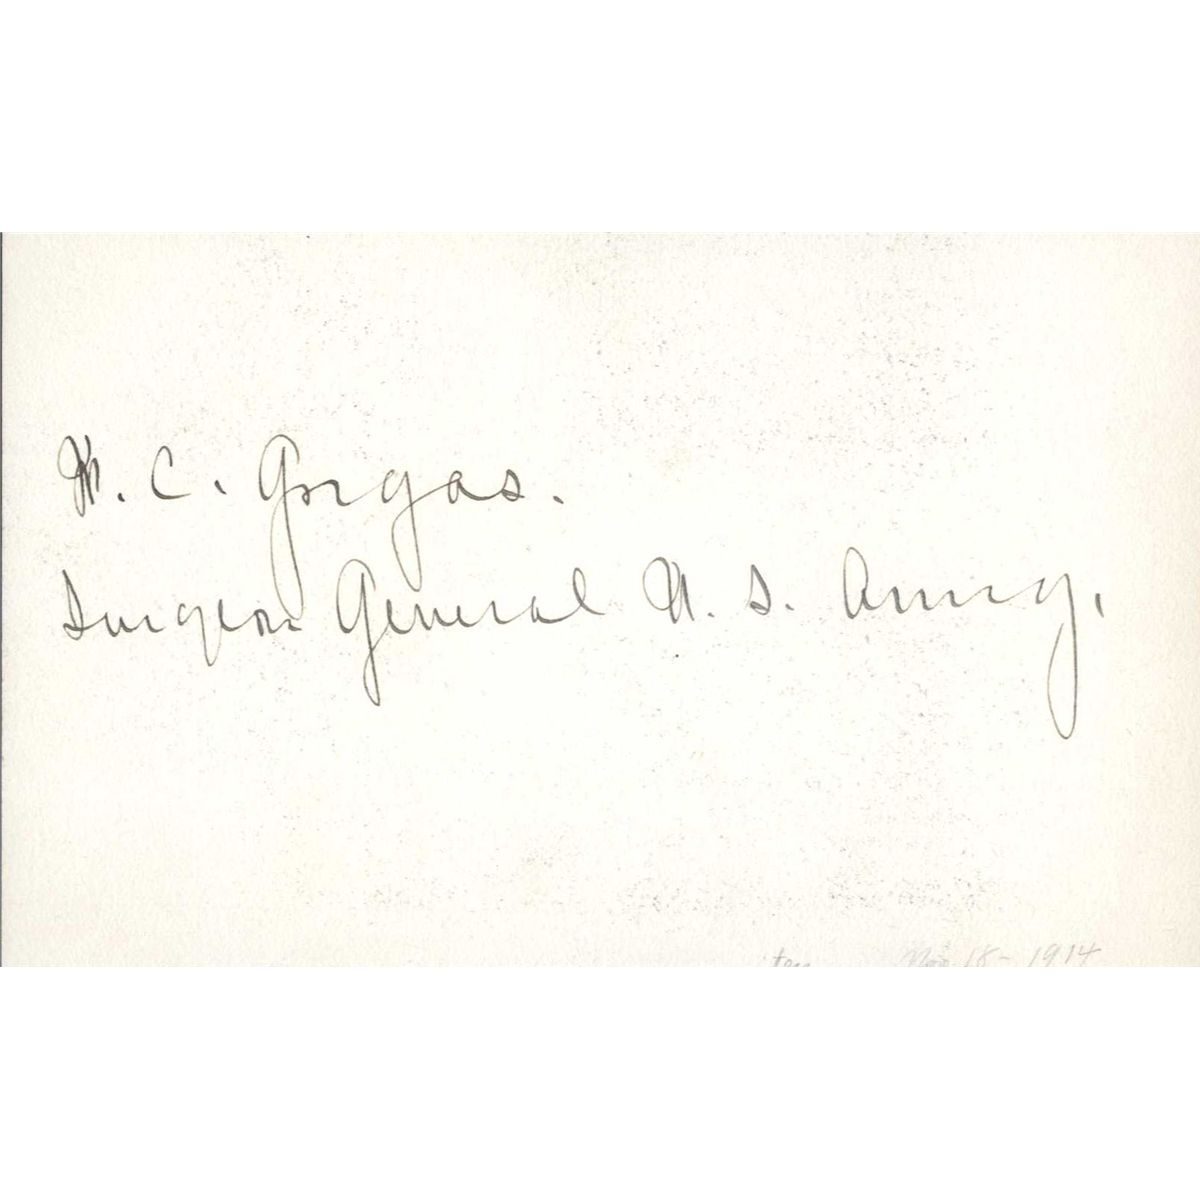 W. C. Gorgas.
Surgeon General U. S. Army.
Nov 18 - 1914